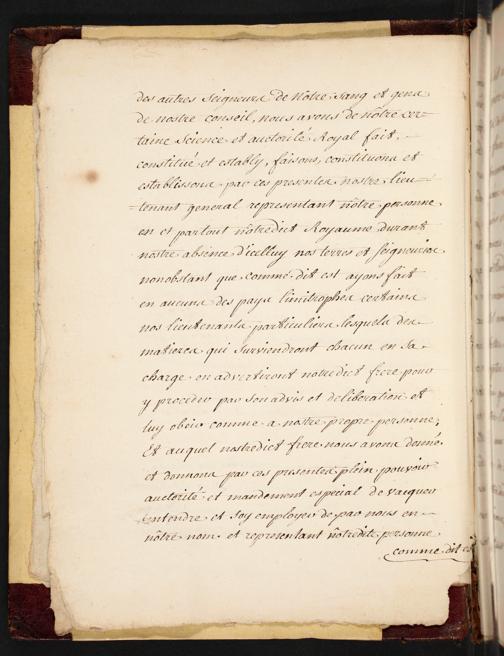 des autres seigneurs de nôtre sang et gens
de nostre conseil, nous avons de nôtre cer=
taine science et auctorité Royal fait, —
constitué et estably, faisons, constituons et
establissons par ces presentes nostre lieu=
=tenant general representant nôtre personne
en et partout nôtredict Royaume durant
nostre absence d'icelluy nos terres et seigneuries
nonobstant que comme dit est ayons fait
en aucuns des pays limitrophes certains
nos lieutenants particuliers lesquels des —
matieres qui surviendront chacun en sa
charge en advertiront notredict frere pour
y proceder par son advis et deliberation et
luy obeir comme a nostre propre personne;
Et auquel nostredict frere nous avons donné
et donnons par ces presentes plein pouvoir
auctorité et mandement especial de vacquer
entendre et soy employer de par nous en —
nôtre nom et representant nôtredite personne
comme dit est